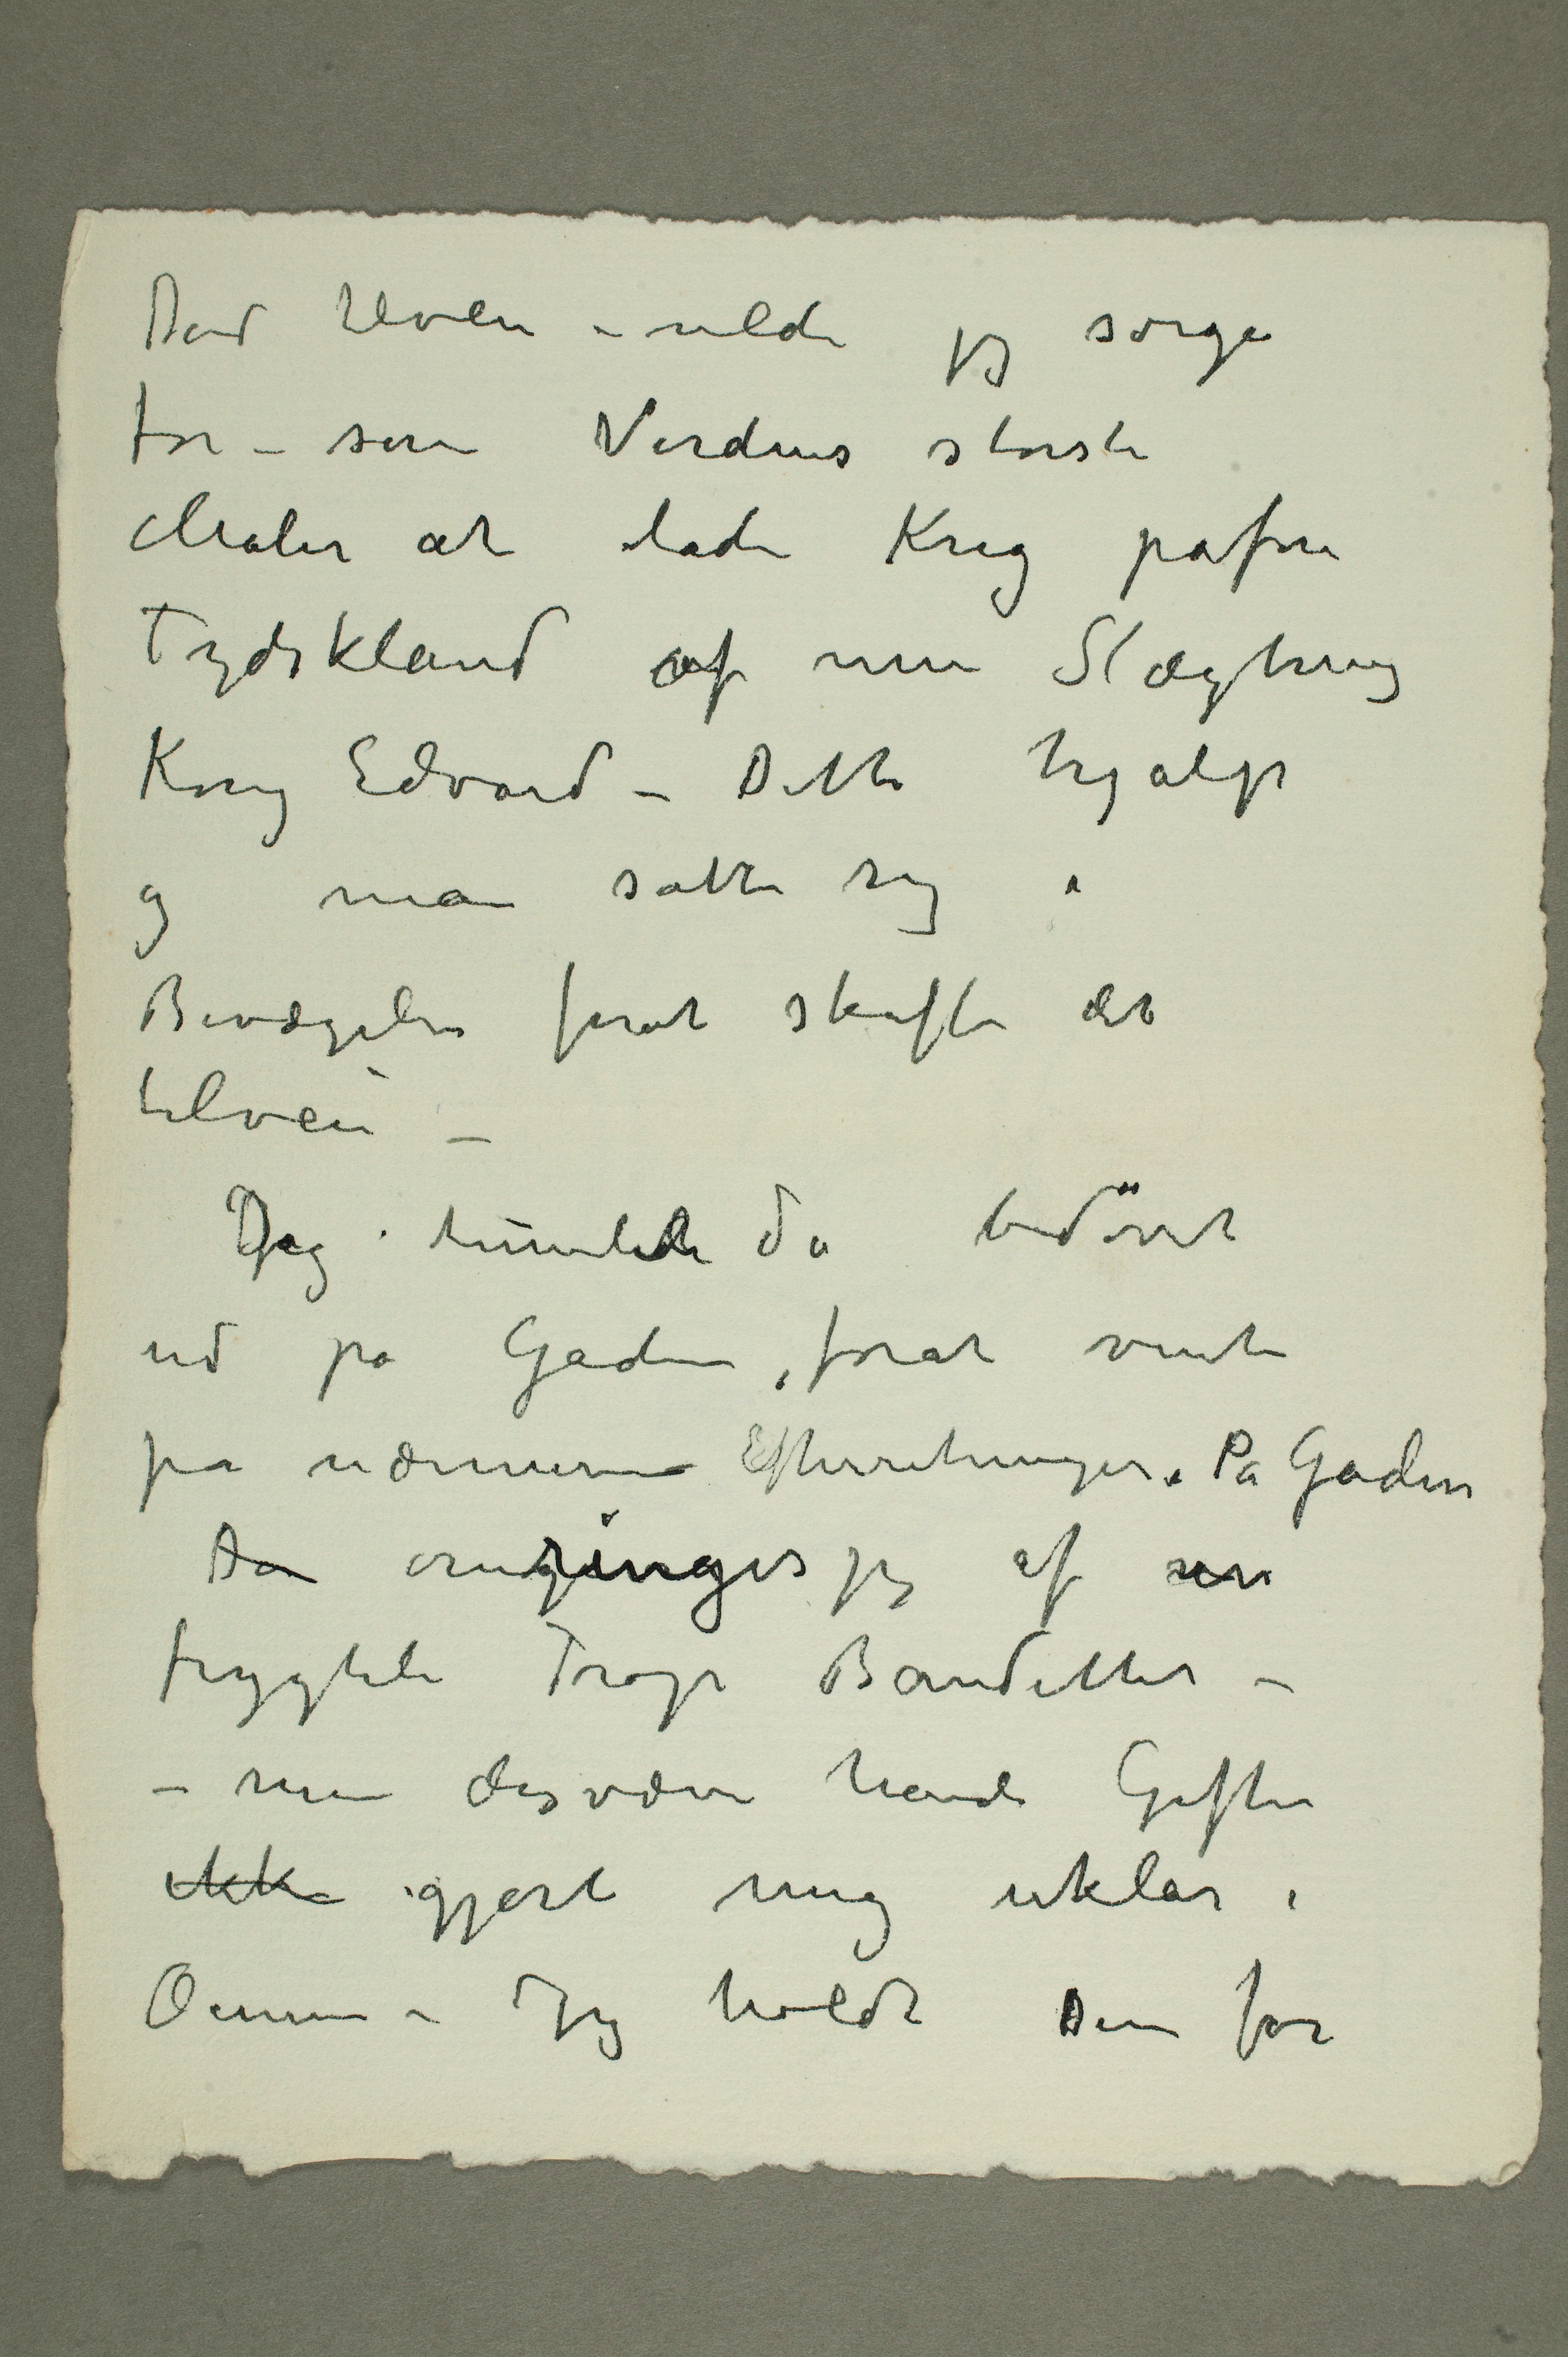 Død Ulven – vilde jeg sørge
for – som Verdens største
Maler at lade Krig påføre
Tydskland af min Slægtning
Kong Edvard – Dette hjalp
og man satte sig i
Bevægelse forat skaffe det
tilveie –
Jeg tumlede da bedøvet
ud på Gaden, forat vente
på nærmere Efterretninger. På Gaden
Da omringes jeg af en
frygteli Trop Bandetter –
– men desværre havde Giften
ikke gjort mig uklar i
Øinene – Jeg holdt Dem for